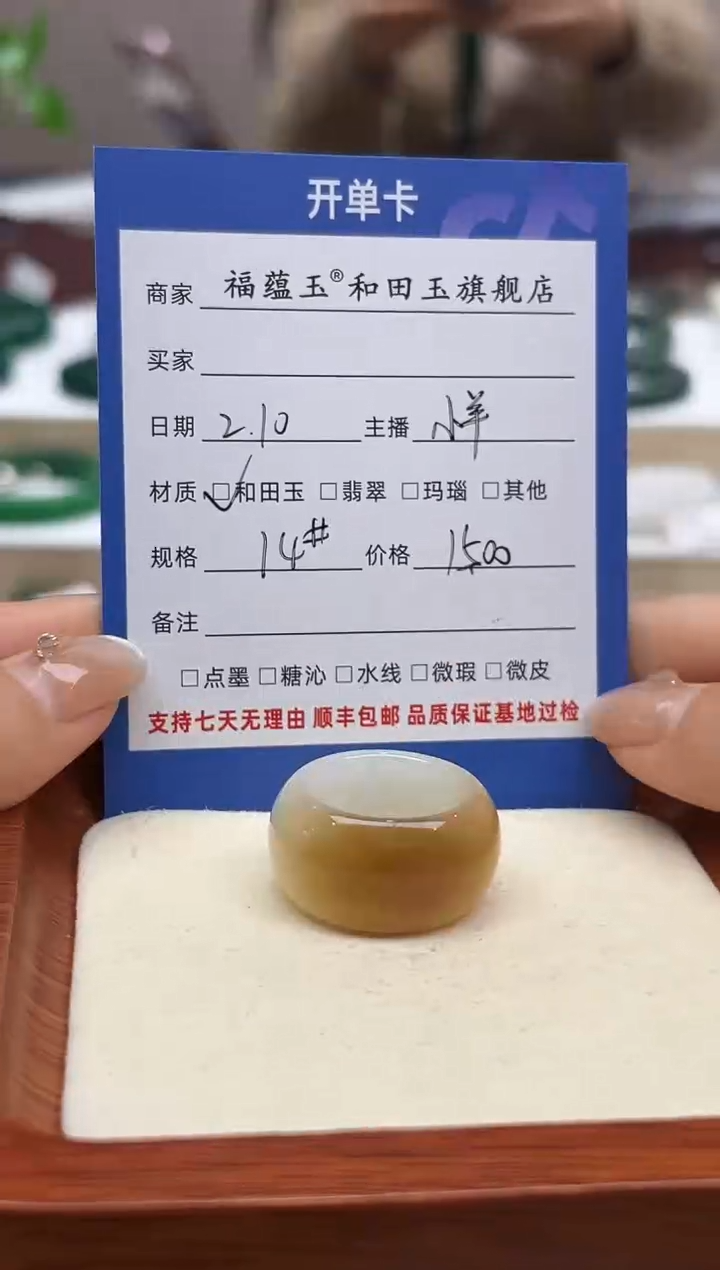 开单卡
商家 福蕴玉®和田玉旗舰店
买家
日期 2.10 主播 小羊
材质 ☑和田玉 □翡翠 □玛瑙 □其他
规格 14# 价格 1500
备注
□点墨 □糖沁 □水线 □微瑕 □微皮
支持七天无理由 顺丰包邮 品质保证基地过检